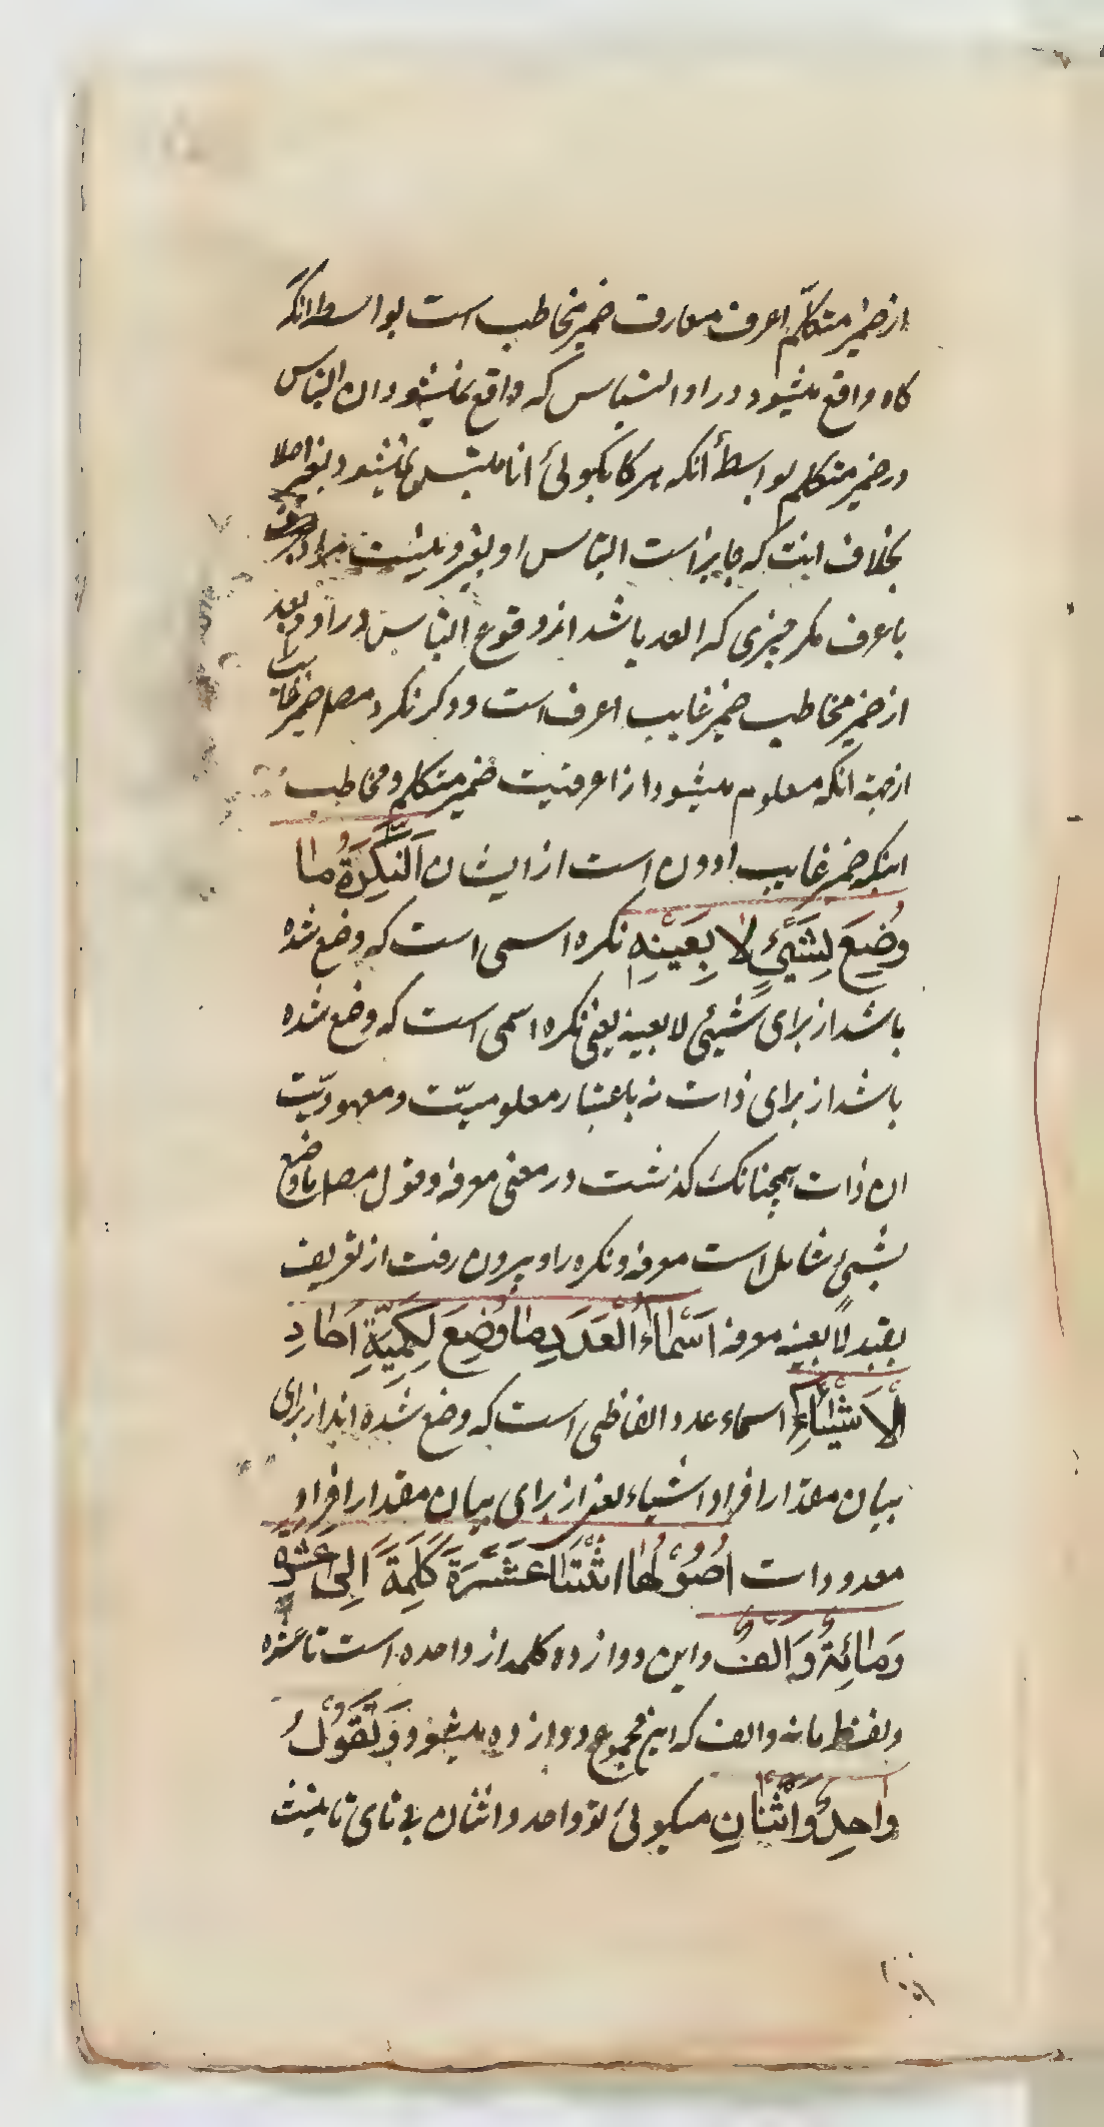 از ضمیر متکلّم اعرف معارف ضمیر مخاطب است بواسطه انکه
کاه واقع میشود در او التباس که واقع نمیشود ان التباس
در ضمیر متکلم بواسطهٔ انکه هر کاه بکوئی انا ملتبس نمیشود بغیر اصلا
بخلاف انت که جایز است التباس او بغیر و نیست مراد مصنف
باعرف مکر چیزی که ابعد باشد از وقوع التباس در او و بعد
از ضمیر مخاطب ضمیر غایب اعرف است و ذکر نکرد مصـ ضمیر غایب
از جهة انکه معلوم میشود از اعرفیت ضمیر متکلم و مخاطب
اینکه ضمیر غایب ادون است از ایشان اَلنَّکِرَةُ ما
وُضِعَ لِشَیْئٍ لا بِعَیْنِهِ نکره اسمی است که وضع شده
باشد از برای شیئی لا بعینه یعنی نکره اسمی است که وضع شده
باشد از برای ذات نه باعتبار معلومیّت و معهودیّت
ان ذات همچنانکه کذشت در معنی معرفه و قول مصـ ما وضع
لشیئ شامل است معرفه و نکره را و بیرون رفت از تعریف
بقید لا بعینه معرفه اَسْماءُ الْعَدَدِ ما وُضِعَ لِکَمِیَّةِ اٰحادِ
الْاَشْیٰاءِ اسماء عدد الفاظی است که وضع شده اند از برای
بیان مقدار افراد اشیاء یعنی از برای بیان مقدار افراد
معدودات اُصُوْلُها اثْنَتا عَشَرَةَ کَلِمَةً اِلی عَشَرَة
وَمائِةٌ وَ اَلْفٌ و این دوازده کلمه از واحده است تا عشره
و لفظ مائه و الف که این مجموع دوازده میشود وَ تَقُوْلُ
واحِدٌ وَ اثْنانِ میکوئی تو واحد و اثنان بی تای تانیث